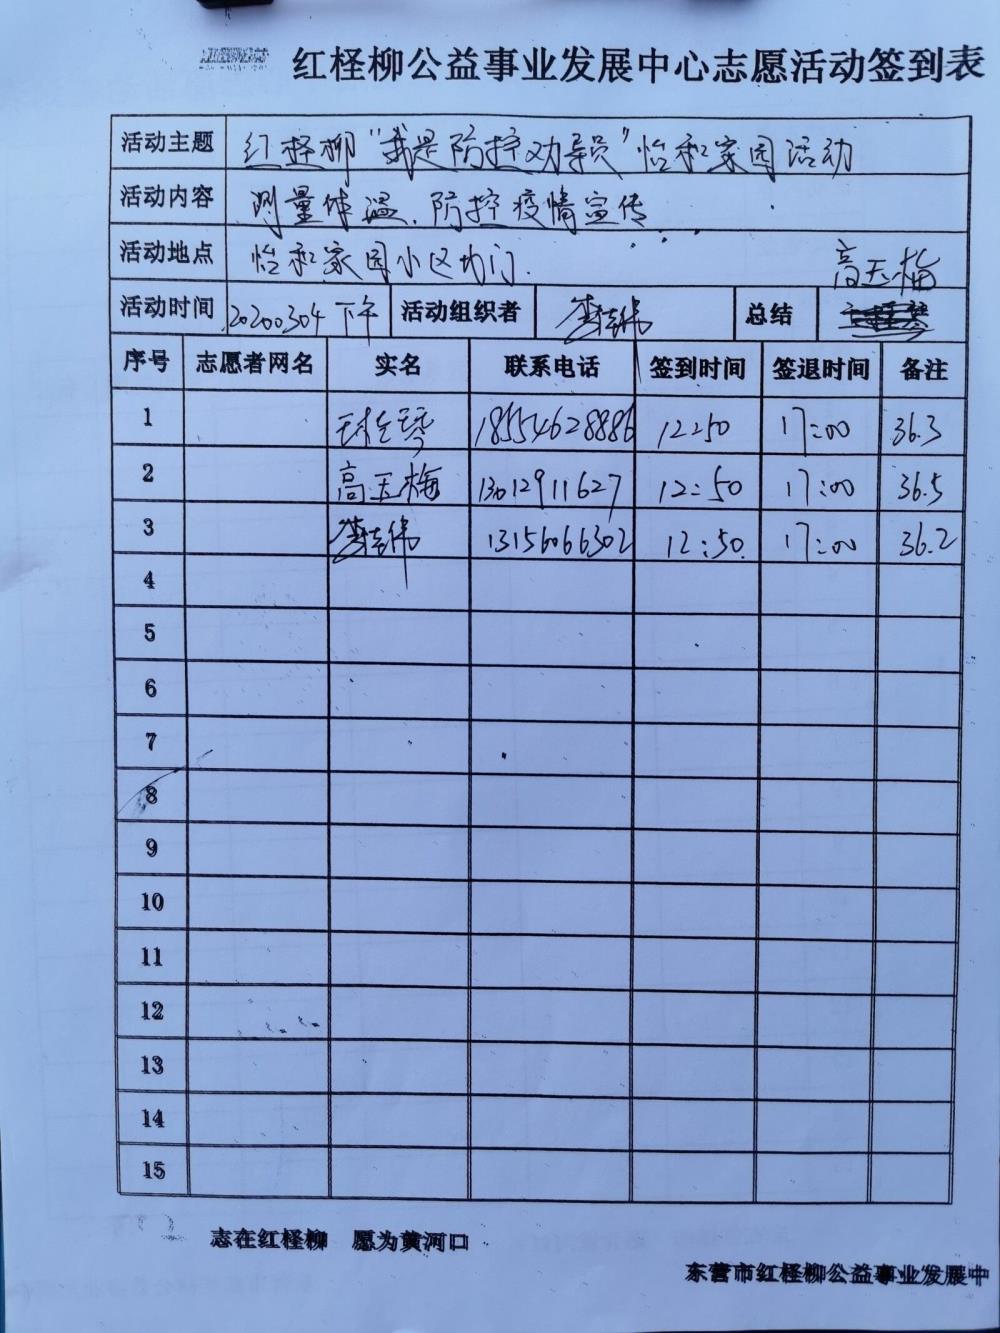 红柽柳公益事业发展中心志愿活动签到表
活动主题 红柽柳“我是防控劝导员”怡和家园活动
活动内容 测量体温、防控疫情宣传
活动地点 怡和家园小区内门.
高玉梅
活动时间 20200304 下午 活动组织者 总结
序号 志愿者网名 实名 联系电话 签到时间 签退时间 备注
1 18554628886 12:50 17:00 36.3
2 高玉梅 13012911627 12:50 17:00 36.5
3 13156066302 12:50 17:00 36.2
4
5
6
7
8
9
10
11
12
13
14
15
志在红柽柳 愿为黄河口
东营市红柽柳公益事业发展中